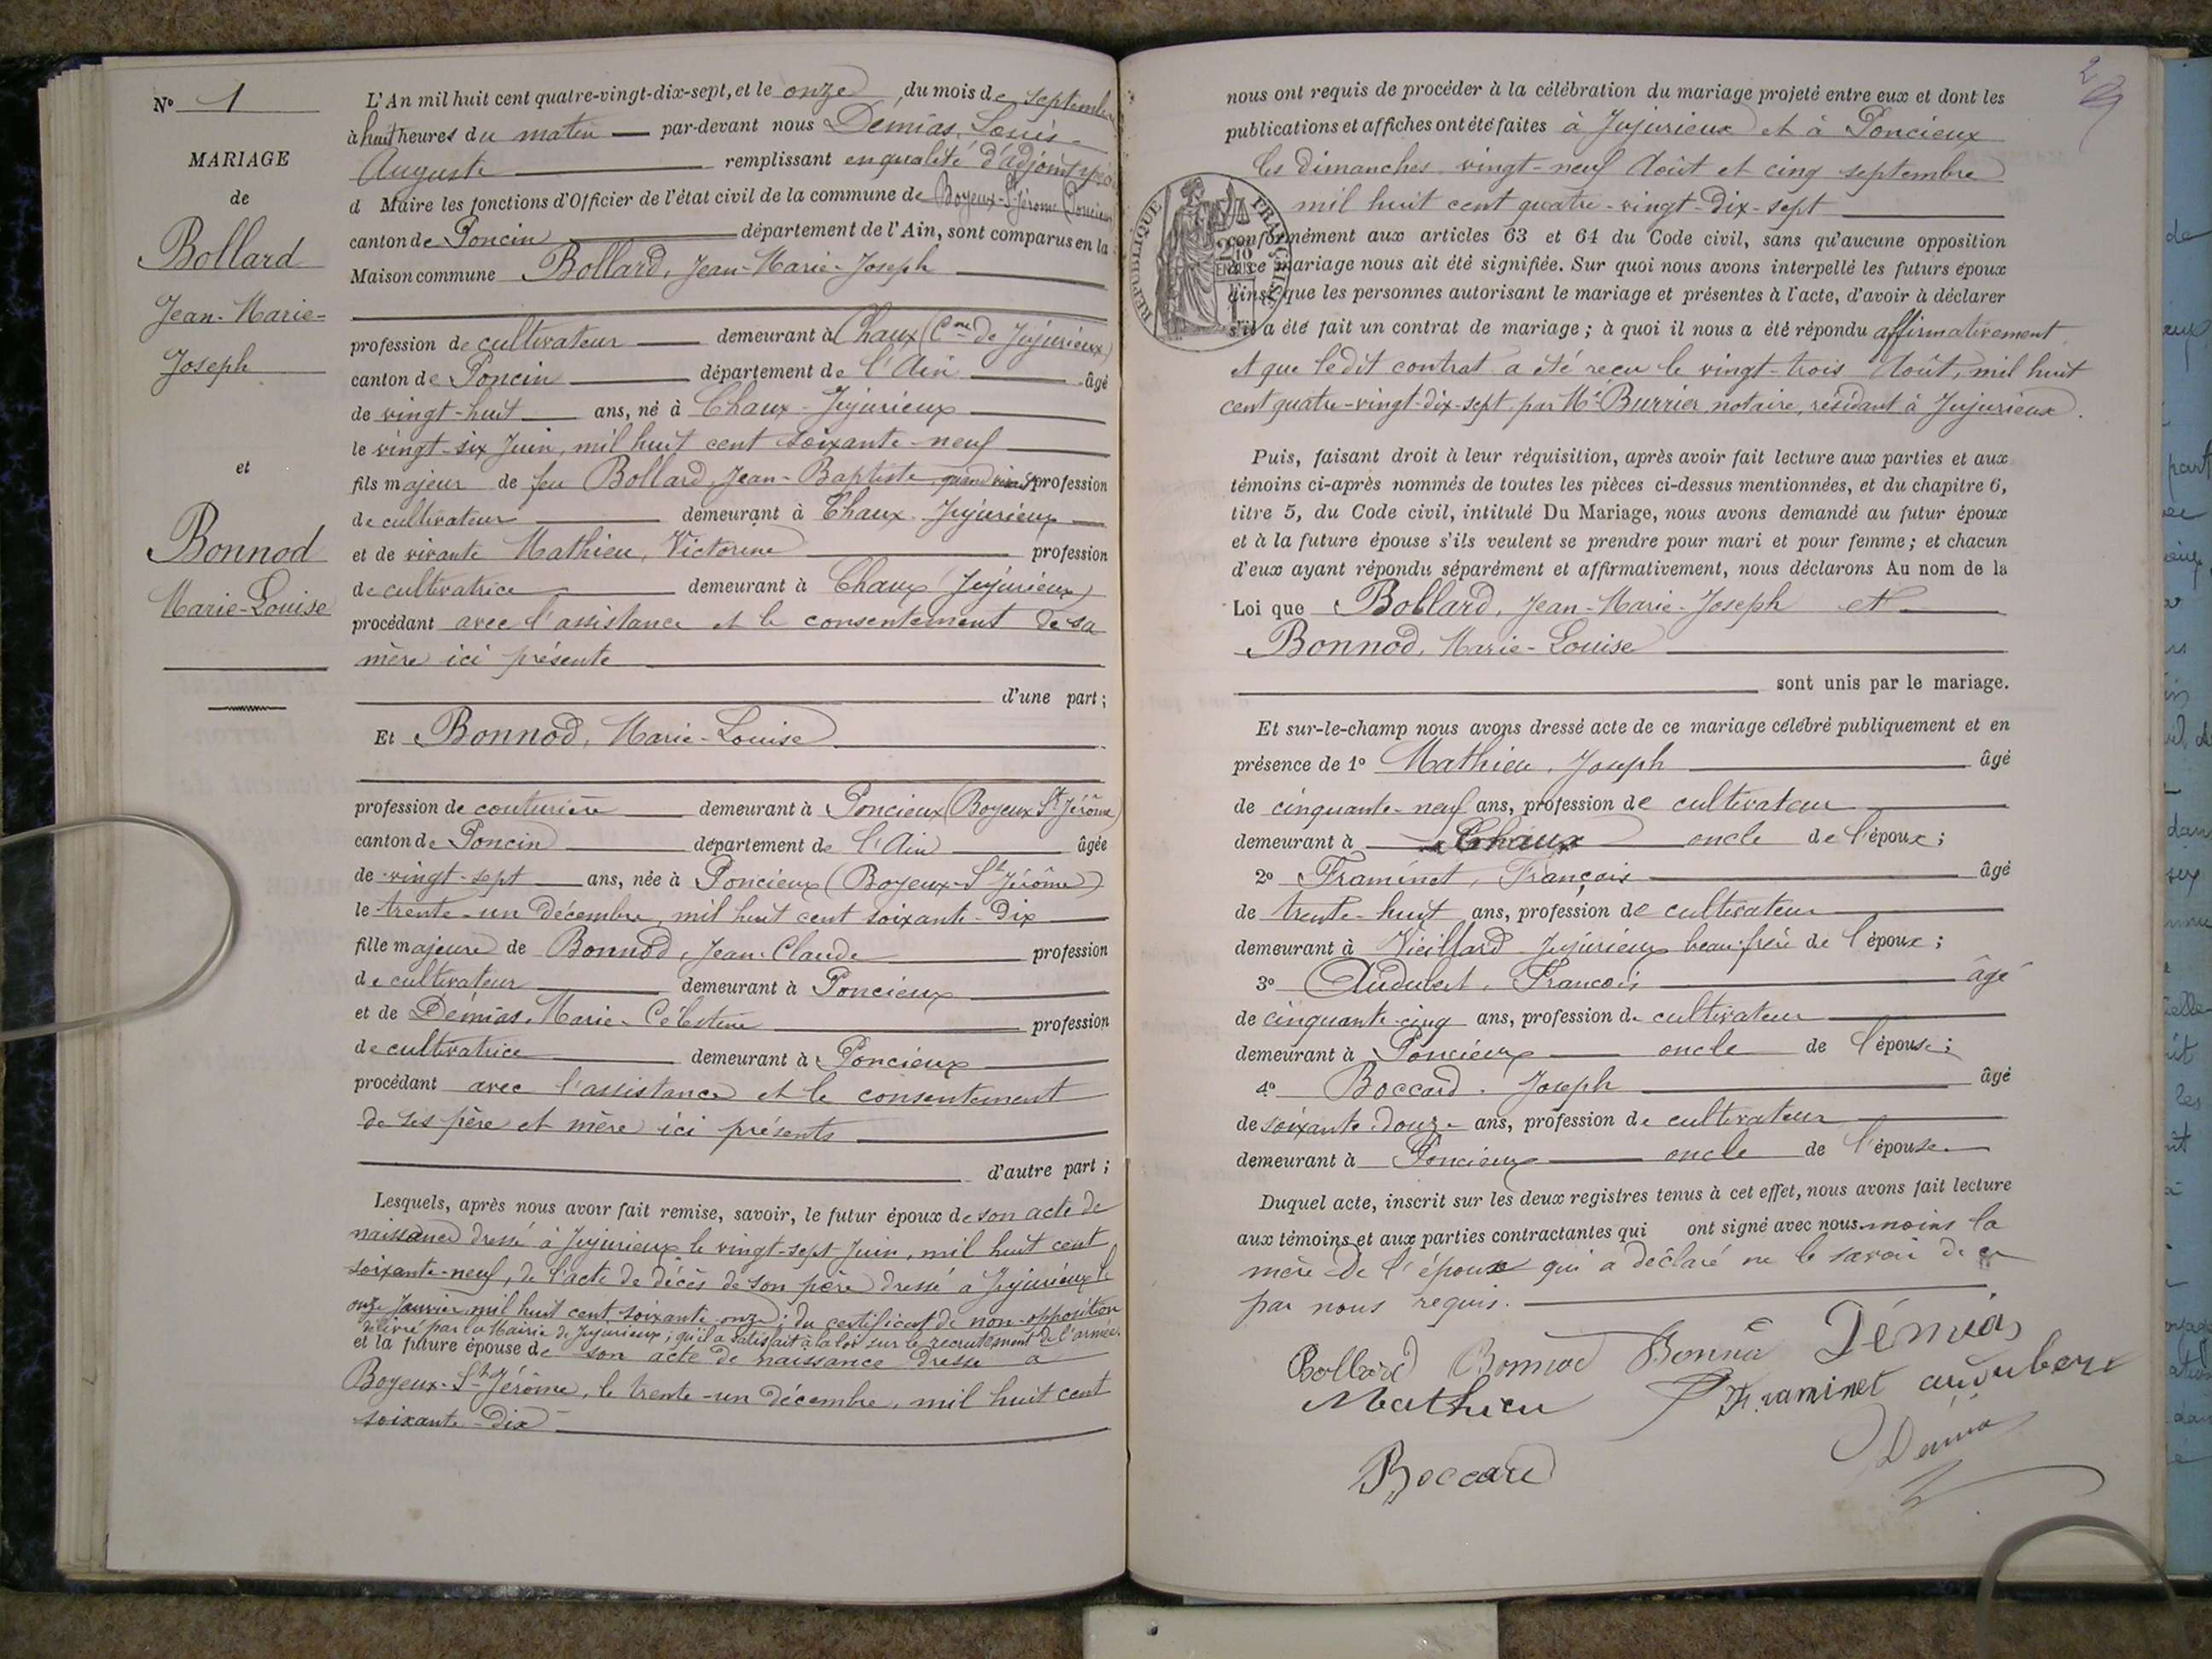 N° 1
MARIAGE
de
Bollard
Jean-Marie-
Joseph
et
Bonnod
Marie-Louise
L'An mil huit cent quatre-vingt-dix-sept, et le onze, du mois de septembre
à huit heures du matin par-devant nous Démias, Louis-
Auguste remplissant en qualité d'adjoint spécial
d Maire les fonctions d'Officier de l'état civil de la commune de Boyeux-St-Jérome (Poncieux)
canton de Poncin département de l'Ain, sont comparus en la
Maison commune Bollard, Jean-Marie-Joseph
profession de cultivateur demeurant à Chaux (Cne de Jujurieux)
canton de Poncin département de l'Ain âgé
de vingt-huit ans, né à Chaux-Jujurieux
le vingt-six Juin, mil huit cent soixante-neuf
fils majeur de feu Bollard, Jean-Baptiste, quand vivait profession
de cultivateur demeurant à Chaux-Jujurieux
et de vivante Mathieu, Victorine profession
de cultivatrice demeurant à Chaux (Jujurieux)
procédant avec l'assistance et le consentement de sa
mère ici présente
d'une part;
Et Bonnod, Marie-Louise
profession de couturière demeurant à Poncieux (Boyeux-St-Jérôme)
canton de Poncin département de l'Ain âgée
de vingt-sept ans, née à Poncieux (Boyeux-St-Jérôme)
le trente-un Décembre, mil huit cent soixante-dix
fille majeure de Bonnod, Jean-Claude profession
de cultivateur demeurant à Poncieux
et de Démias, Marie-Célestine profession
de cultivatrice demeurant à Poncieux
procédant avec l'assistance et le consentement
de ses père et mère ici présents
d'autre part;
Lesquels, après nous avoir fait remise, savoir, le futur époux de son acte de
naissance dressé à Jujurieux le vingt-sept Juin, mil huit cent
soixante-neuf, de l'acte de décès de son père dressé à Jujurieux le
onze Janvier mil huit cent soixante-onze; du certificat de non-opposition
délivré par la Mairie de Jujurieux; qu'il a satisfait à la loi sur le recrutement de l'armée.
et la future épouse de son acte de naissance dressé à
Boyeux-St-Jérôme, le trente-un décembre, mil huit cent
soixante-dix
2
nous ont requis de procéder à la célébration du mariage projeté entre eux et dont les
publications et affiches ont été faites à Jujurieux et à Poncieux
les dimanches vingt-neuf Août et cinq septembre
mil huit cent quatre-vingt-dix-sept
RÉPUBLIQUE FRANÇAISE
conformément aux articles 63 et 64 du Code civil, sans qu'aucune opposition
à ce mariage nous ait été signifiée. Sur quoi nous avons interpellé les futurs époux
ainsi que les personnes autorisant le mariage et présentes à l'acte, d'avoir à déclarer
s'il a été fait un contrat de mariage; à quoi il nous a été répondu affirmativement
et que ledit contrat a été reçu le vingt-trois Août, mil huit
cent quatre-vingt-dix-sept par Me Burrier, notaire, résidant à Jujurieux.
Puis, faisant droit à leur réquisition, après avoir fait lecture aux parties et aux
témoins ci-après nommés de toutes les pièces ci-dessus mentionnées, et du chapitre 6,
titre 5, du Code civil, intitulé Du Mariage, nous avons demandé au futur époux
et à la future épouse s'ils veulent se prendre pour mari et pour femme; et chacun
d'eux ayant répondu séparément et affirmativement, nous déclarons Au nom de la
Loi que Bollard, Jean-Marie-Joseph et
Bonnod, Marie-Louise
sont unis par le mariage.
Et sur-le-champ nous avons dressé acte de ce mariage célébré publiquement et en
présence de 1° Mathieu, Joseph âgé
de cinquante-neuf ans, profession de cultivateur
demeurant à Chaux oncle de l'époux;
2° Framinet, François âgé
de trente-huit ans, profession de cultivateur
demeurant à Vieillard-Jujurieux beau-frère de l'époux;
3° Audubert, François âgé
de cinquante-cinq ans, profession de cultivateur
demeurant à Poncieux oncle de l'épouse;
4° Boccard, Joseph âgé
de soixante-douze ans, profession de cultivateur
demeurant à Poncieux oncle de l'épouse.
Duquel acte, inscrit sur les deux registres tenus à cet effet, nous avons fait lecture
aux témoins et aux parties contractantes qui ont signé avec nous moins la
mère de l'époux qui a déclaré ne le savoir de ce
par nous requis.
Bollard Bonnod Démias
Mathieu Framinet audubert
Boccard